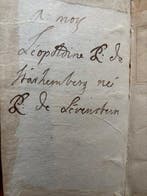 a moy
Leopoldine P. de
Starhemberg né
P. de Levenstein